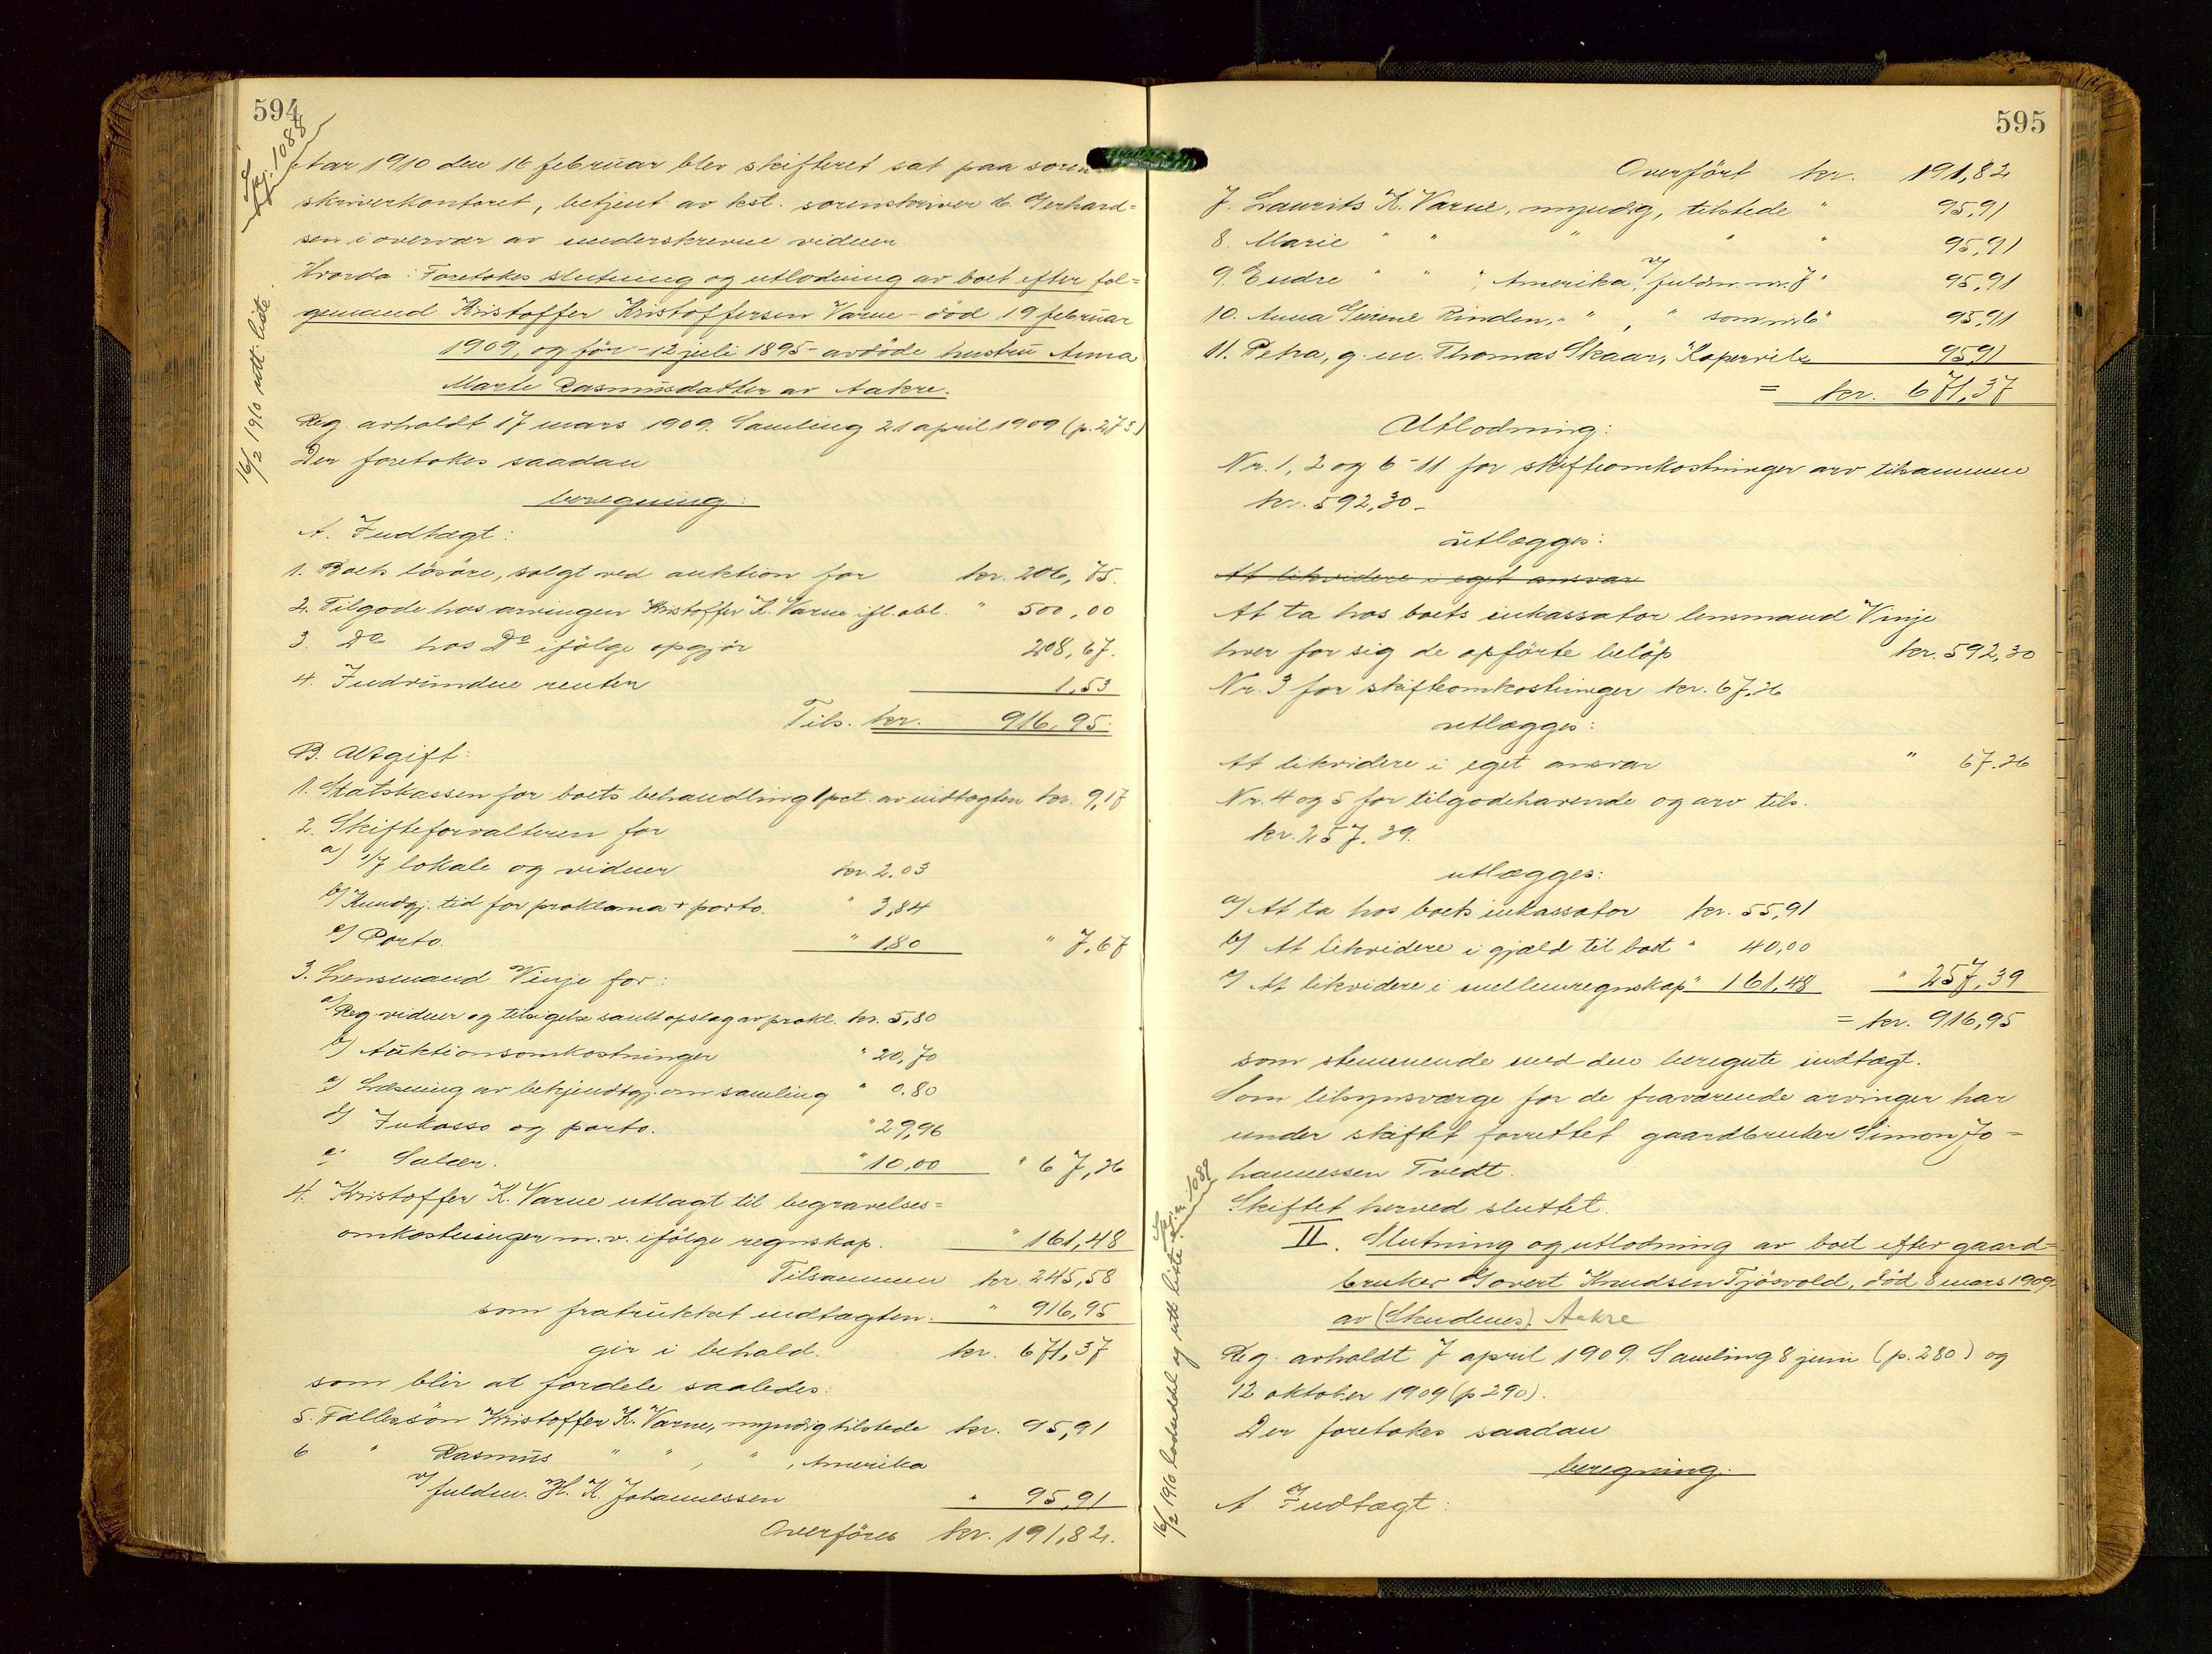 594
I.
Skj. 1088
16/2 1910 utt liste.
Aar 1910 den 16 februar blev skifteret sat paa soren-
skriverkontoret, betjent av kst. sorenskriver d. Gerhard=
sen i overvær av underskrevne vidner
Hvorda: Foretokes slutning og utlodning av boet efter føl=
gemand Kristoffer Kristoffersen Varne - död 19 februar
1909, og för - 12 juli 1895 - avdöde hustru Anna
Marte Rasmusdatter av Aakre.
Reg. avholdt 17 mars 1909. Samling 21 april 1909 (p. 273)
Der foretokes saadan
beregning:
A. Indtægt:
1. Boets lösöre, solgt ved auktion for kr. 206,75.
2. Tilgode hos arvingen Kristoffer K. Varne ifl. obl. " 500,00
3. Do hos Do ifölge opgjör 208,67.
4. Indvundne renter 1,53
Tils. kr. 916,95.
B. Utgift:
1. Statskassen for boets behandling 1 pct. av indtægten kr. 9,17
2. Skifteforvalteren for
a) 1/7 lokale og vidner kr. 2.03
b) Kundgj. tid for proklama + porto. " 3,84
c) Porto. " 1.80 " 7,67
3. Lensmand Vinje for:
a) Reg. vidner og tilsigelse samt opslag av prokl. kr. 5,80
b) Auktionsomkostninger " 20,70
c) Læsning av bekjendtgj. om samling " 0.80
d) Inkasso og porto. " 29,96
e) Salær. " 10,00 " 67,26
4. Kristoffer K. Varne utlagt til begravelses=
omkostninger m.v. ifölge regnskap. " 161,48
Tilsammen kr. 245,58
som fratrukket indtægten. " 916,95
gir i behold. kr. 671,37
som blir at fordele saaledes:
5. Fællessön Kristoffer K. Varne, myndig tilstede kr. 95,91
6 " Rasmus " " , " , Amerika
v/ fuldm. H. K. Johannessen " 95,91
Overföres kr. 191,82.
595
Overfört kr. 191,82
7. Laurits K. Varne, myndig, tilstede " 95,91
8. Marie " " " " " 95,91
9. Endre " " " Amerika, v/ fuldm. nr. 7 " 95,91
10. Anna Serine Rinden, " " , " som nr 6 " 95,91
11. Petra, g. m. Thomas Skaar, Kopervik 95,91
= kr. 671,37
Utlodning:
Nr. 1, 2 og 6-11 for skifteomkostninger arv tilsammen
kr. 592,30 -
utlægges:
At likvidere i eget ansvar
At ta hos boets inkassator lensmand Vinje
hver for sig de opförte belöp kr. 592,30
Nr. 3 for skifteomkostninger kr. 67.26
utlægges:
At likvidere i eget ansvar " 67.26
Nr. 4 og 5 for tilgodehavende og arv tils.
kr. 257.39.
utlægges:
a) At ta hos boets inkassator kr. 55,91
b) At likvidere i gjæld til boet " 40,00
c) At likvidere i mellemregnskap " 161,48 " 257,39
= kr. 916,95
som stemmende med den beregnte indtægt.
Som tilsynsværge for de fraværende arvinger har
under skiftet forrettet gaardbruker Simon Jo=
hannessen Tvedt.
Skiftet herved sluttet.
II. Slutning og utlodning av boet efter gaard=
bruker Govert Knudsen Tjösvold, död 8 mars 1909
av (Skudenes). Aakre
Reg. avholdt 7 april 1909. Samling 8 juni (p. 280) og
12 oktober 1909 (p 290).
Der foretokes saadan
beregning.
A. Indtægt:
16/2 1910 loddeddel og utt liste